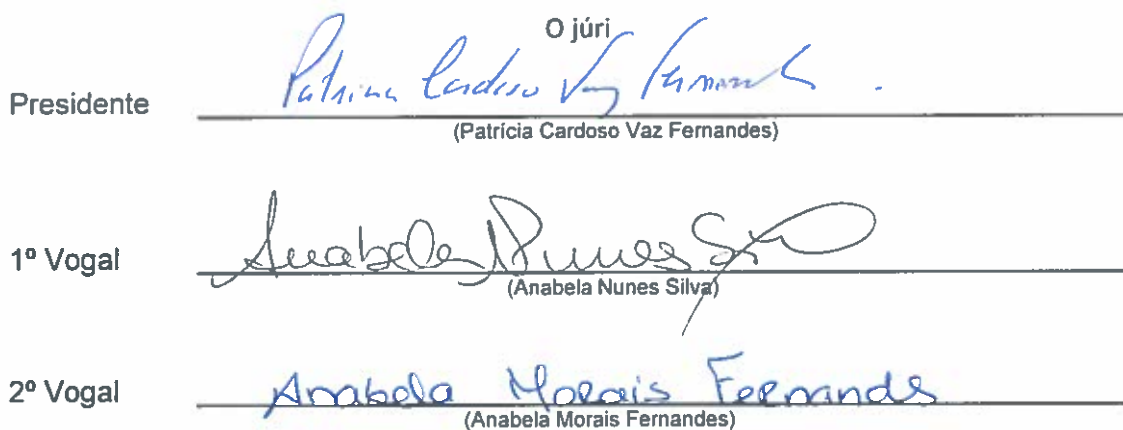 O júri
Presidente Patrícia Cardoso Vaz Fernandes
(Patrícia Cardoso Vaz Fernandes)
1º Vogal Anabela Nunes Silva
(Anabela Nunes Silva)
2º Vogal Anabela Morais Fernandes
(Anabela Morais Fernandes)